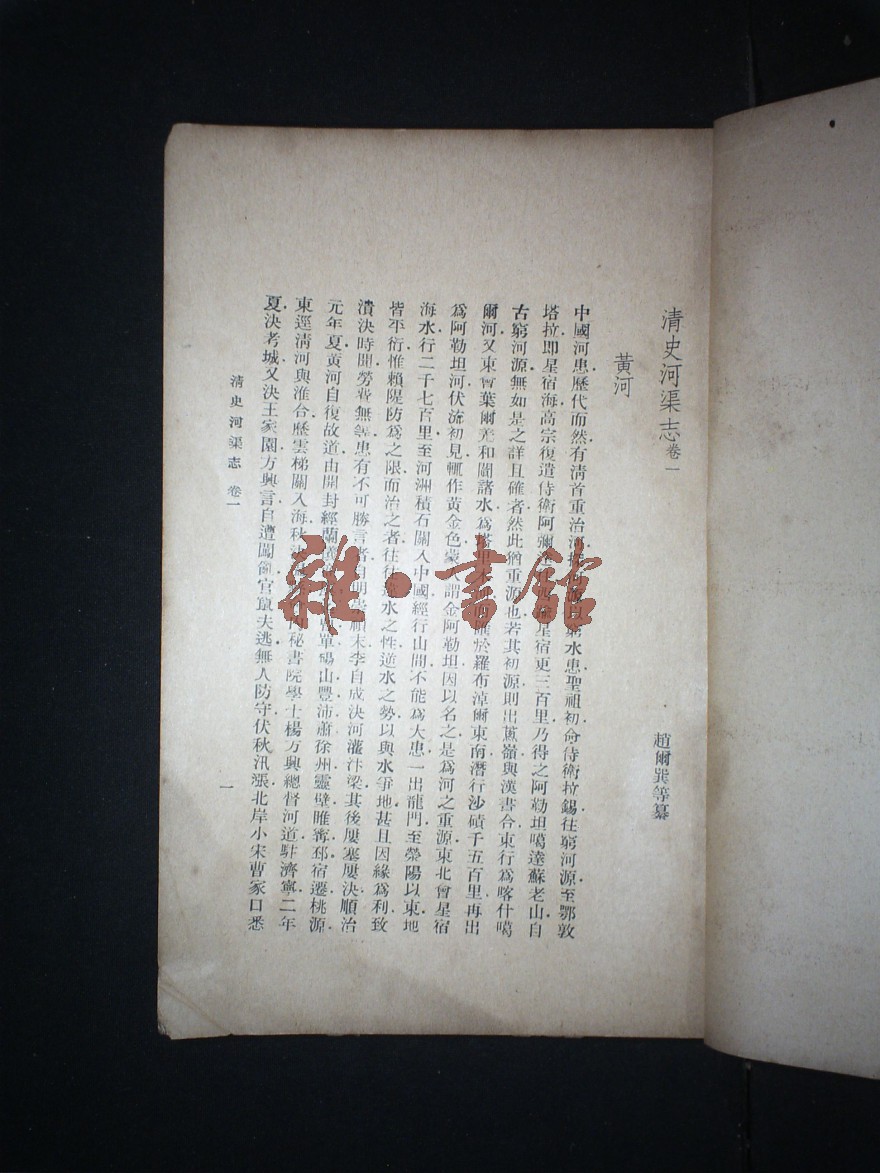 清史河渠志卷一
趙爾巽等纂
黃河
中國河患歷代而然有清首重治河 窮水患聖祖初命侍衛拉錫往窮河源至鄂敦
塔拉卽星宿海高宗復遣侍衛阿彌 星宿更三百里乃得之阿勒坦噶達蘇老山自
古窮河源無如是之詳且確者然此猶重源也若其初源則出蔥嶺與漢書合東行爲喀什噶
爾河又東會葉爾羌和闐諸水爲塔里木 於羅布淖爾東南潛行沙磧千五百里再出
爲阿勒坦河伏流初見輒作黃金色蒙人謂金阿勒坦因以名之是爲河之重源東北會星宿
海水行二千七百里至河洲積石關入中國經行山間不能爲大患一出龍門至滎陽以東地
皆平衍惟賴隄防爲之限而治之者往往違水之性逆水之勢以與水爭地甚且因緣爲利致
潰決時聞勞費無等患有不可勝言者自明崇禎末李自成決河灌汴梁其後屢塞屢決順治
元年夏黃河自復故道由開封經蘭儀 單碭山豐沛蕭徐州靈壁睢寧邳宿遷桃源
東逕淸河與淮合歷雲梯關入海秋 內秘書院學士楊方興總督河道駐濟寧二年
夏決考城又決王家園方興言自遭闖亂官竄夫逃無人防守伏秋汛漲北岸小宋曹家口悉
清史河渠志 卷一
一
雜·書館